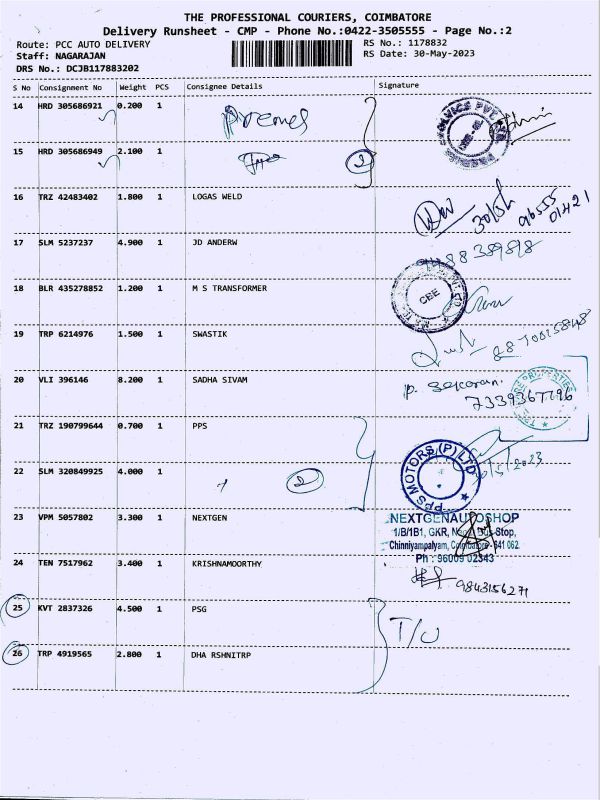 THE PROFESSIONAL COURIERS, COIMBATORE
Delivery Runsheet - CMP - Phone No.:0422-3505555 - Page No.:2
Route: PCC AUTO DELIVERY RS No.: 1178832
Staff: NAGARAJAN RS Date: 30-May-2023
DRS No.: DCJB117883202
S No Consignment No Weight PCS Consignee Details Signature
14 HRD 305686921 0.200 1
15 HRD 305686949 2.100 1 2
16 TRZ 42483402 1.800 1 LOGAS WELD
17 SLM 5237237 4.900 1 JD ANDERW
18 BLR 435278852 1.200 1 M S TRANSFORMER
CEE
19 TRP 6214976 1.500 1 SWASTIK
20 VLI 396146 8.200 1 SADHA SIVAM P. Sekaran.
7339367796
21 TRZ 190799644 0.700 1 PPS
22 SLM 320849925 4.000 1 2 PPS MOTORS (P) LTD
23 VPM 5057802 3.300 1 NEXTGEN NEXTGENAUTOSHOP
1/B/1B1, GKR, Bus Stop,
Chinniyampalyam, Coimbatore - 641 062.
24 TEN 7517962 3.400 1 KRISHNAMOORTHY Ph : 96009 02343
9843156271
25 KVT 2837326 4.500 1 PSG T/O
26 TRP 4919565 2.800 1 DHA RSHNITRP